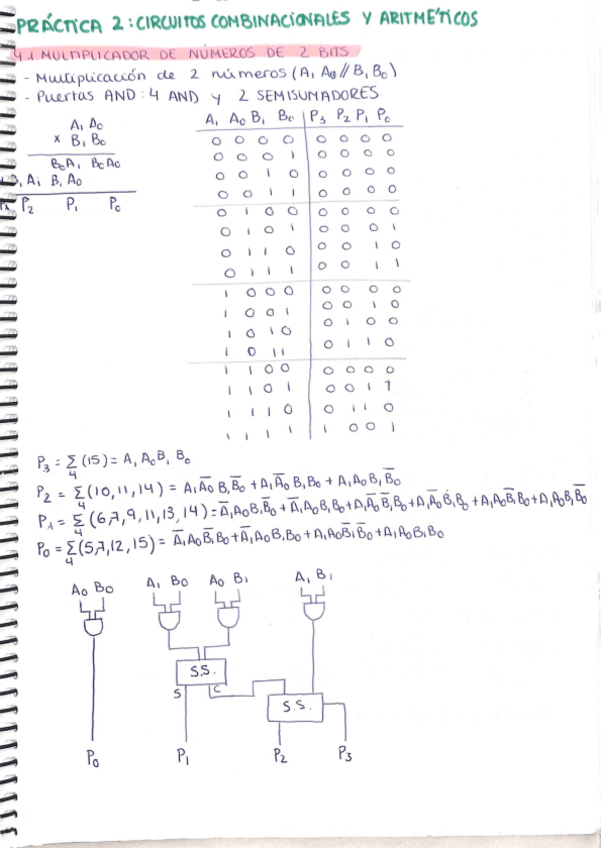 PRÁCTICA 2: CIRCUITOS COMBINACIONALES Y ARITMÉTICOS
4.1 MULTIPLICADOR DE NÚMEROS DE 2 BITS
- Multiplicación de 2 números (A₁ A₀ // B₁ B₀)
- Puertas AND: 4 AND y 2 SEMISUMADORES
A₁ A₀
x B₁ B₀
B₀A₁ B₀A₀
B₁A₁ B₁A₀
P₂ P₁ P₀
A₁ A₀ B₁ B₀ | P₃ P₂ P₁ P₀
0 0 0 0 0 0 0 0
0 0 0 1 0 0 0 0
0 0 1 0 0 0 0 0
0 0 1 1 0 0 0 0
0 1 0 0 0 0 0 0
0 1 0 1 0 0 0 1
0 1 1 0 0 0 1 0
0 1 1 1 0 0 1 1
1 0 0 0 0 0 0 0
1 0 0 1 0 0 1 0
1 0 1 0 0 1 0 0
1 0 1 1 0 1 1 0
1 1 0 0 0 0 0 0
1 1 0 1 0 0 1 1
1 1 1 0 0 1 1 0
1 1 1 1 1 0 0 1
P₃ = Σ₄ (15) = A₁ A₀ B₁ B₀
P₂ = Σ₄ (10, 11, 14) = A₁A̅₀ B₁B̅₀ + A₁A̅₀ B₁B₀ + A₁A₀B₁B̅₀
P₁ = Σ₄ (6,7,9,11,13,14) = A̅₁A₀B₁B̅₀ + A̅₁A₀B₁B₀ + A₁A̅₀B̅₁B₀ + A₁A̅₀B₁B₀ + A₁A₀B̅₁B₀ + A₁A₀B₁B̅₀
P₀ = Σ₄ (5,7,12,15) = A̅₁A₀B̅₁B₀ + A̅₁A₀B₁B₀ + A₁A₀B̅₁B̅₀ + A₁A₀B₁B₀
A₀ B₀ A₁ B₀ A₀ B₁ A₁ B₁
S.S.
S C
S.S.
P₀ P₁ P₂ P₃